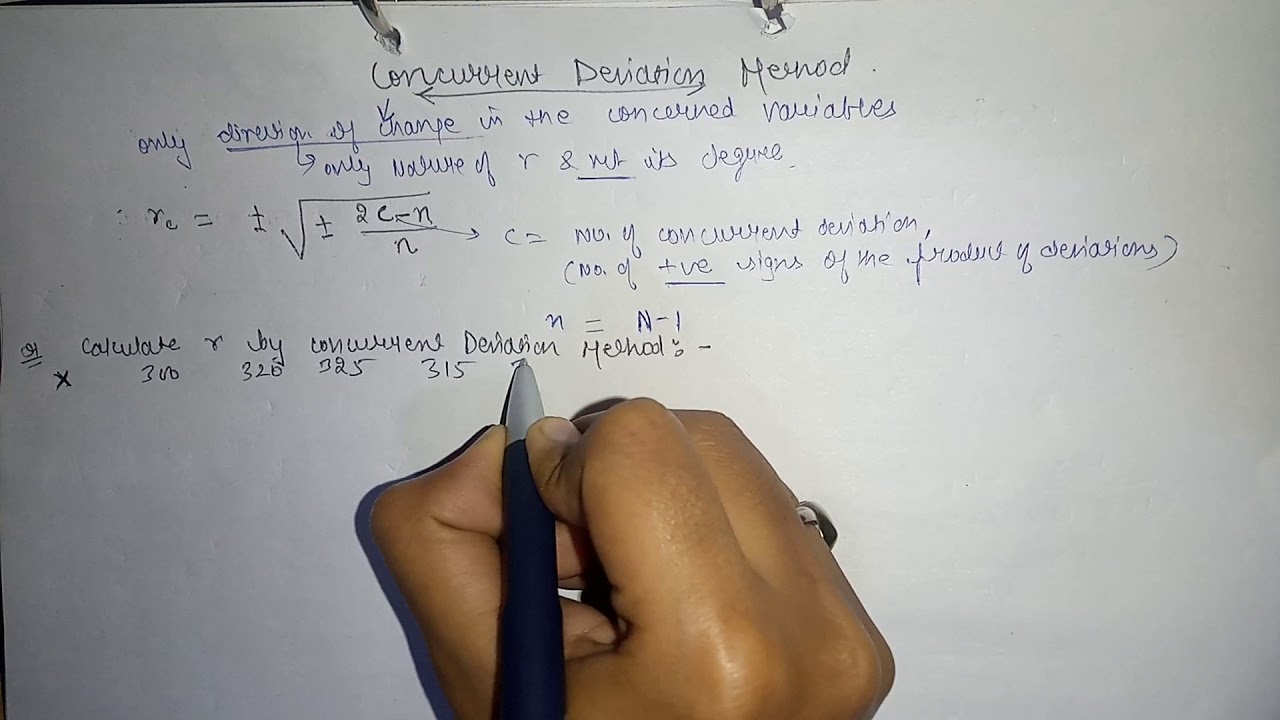 Concurrent Deviation Method.
only direction of change in the concerned variables
only nature of r & not its degree.
∴ rc = ± √± 2C-n / n → C = No. of concurrent deviation,
(No. of +ve signs of the product of deviations)
n = N-1
Q Calculate r by concurrent Deviation Method: -
X 300 320 325 315